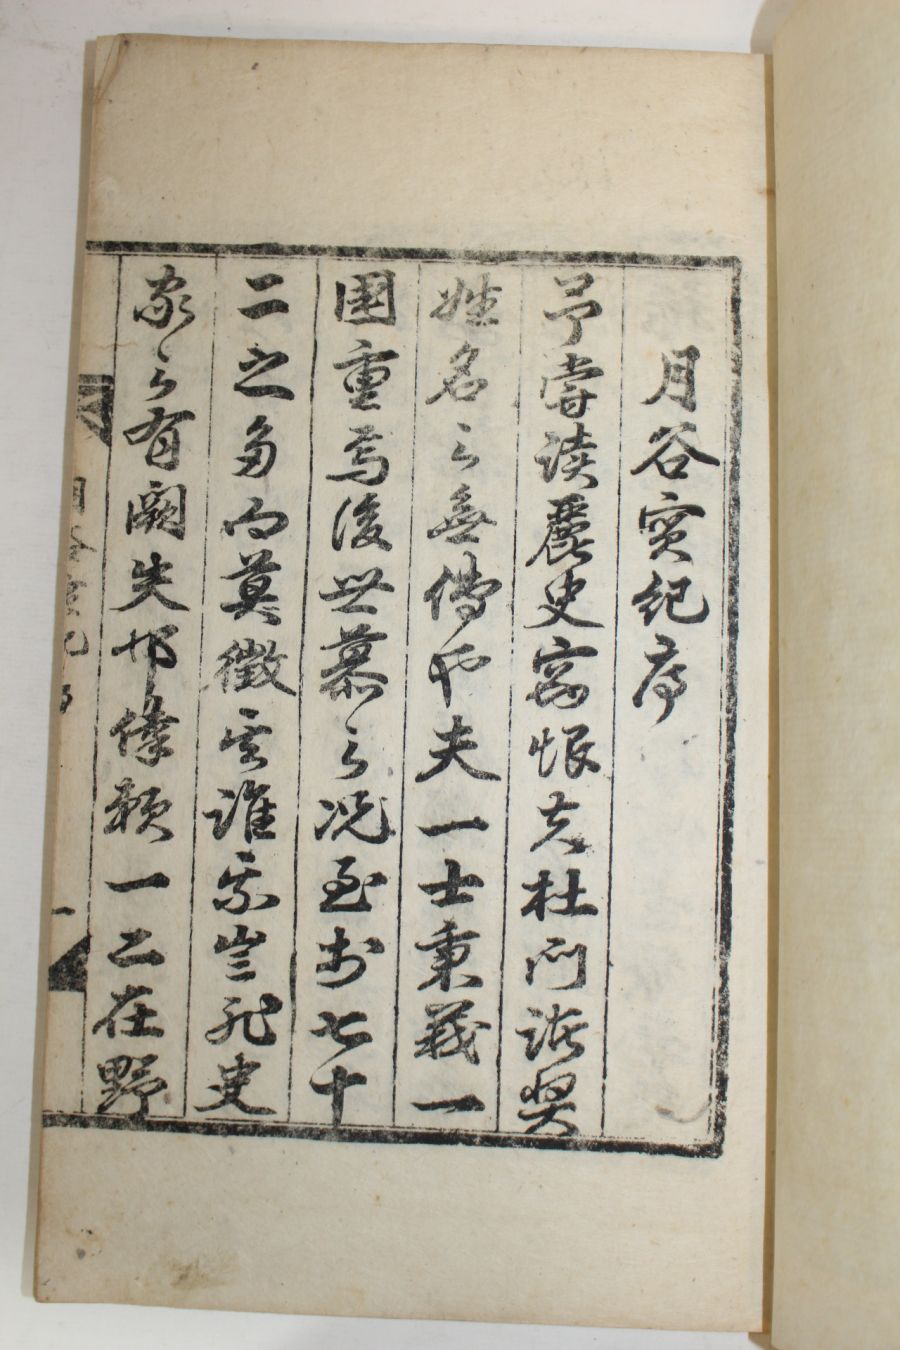 月谷實紀序
予嘗讀麗史竊恨夫杜門諸賢
姓名之無傳也夫一士秉義一
國重焉後世慕之况至於七十
二之多而莫徵其誰某豈非史
家之有闕失耶僅賴一二在野
月谷實紀序
一